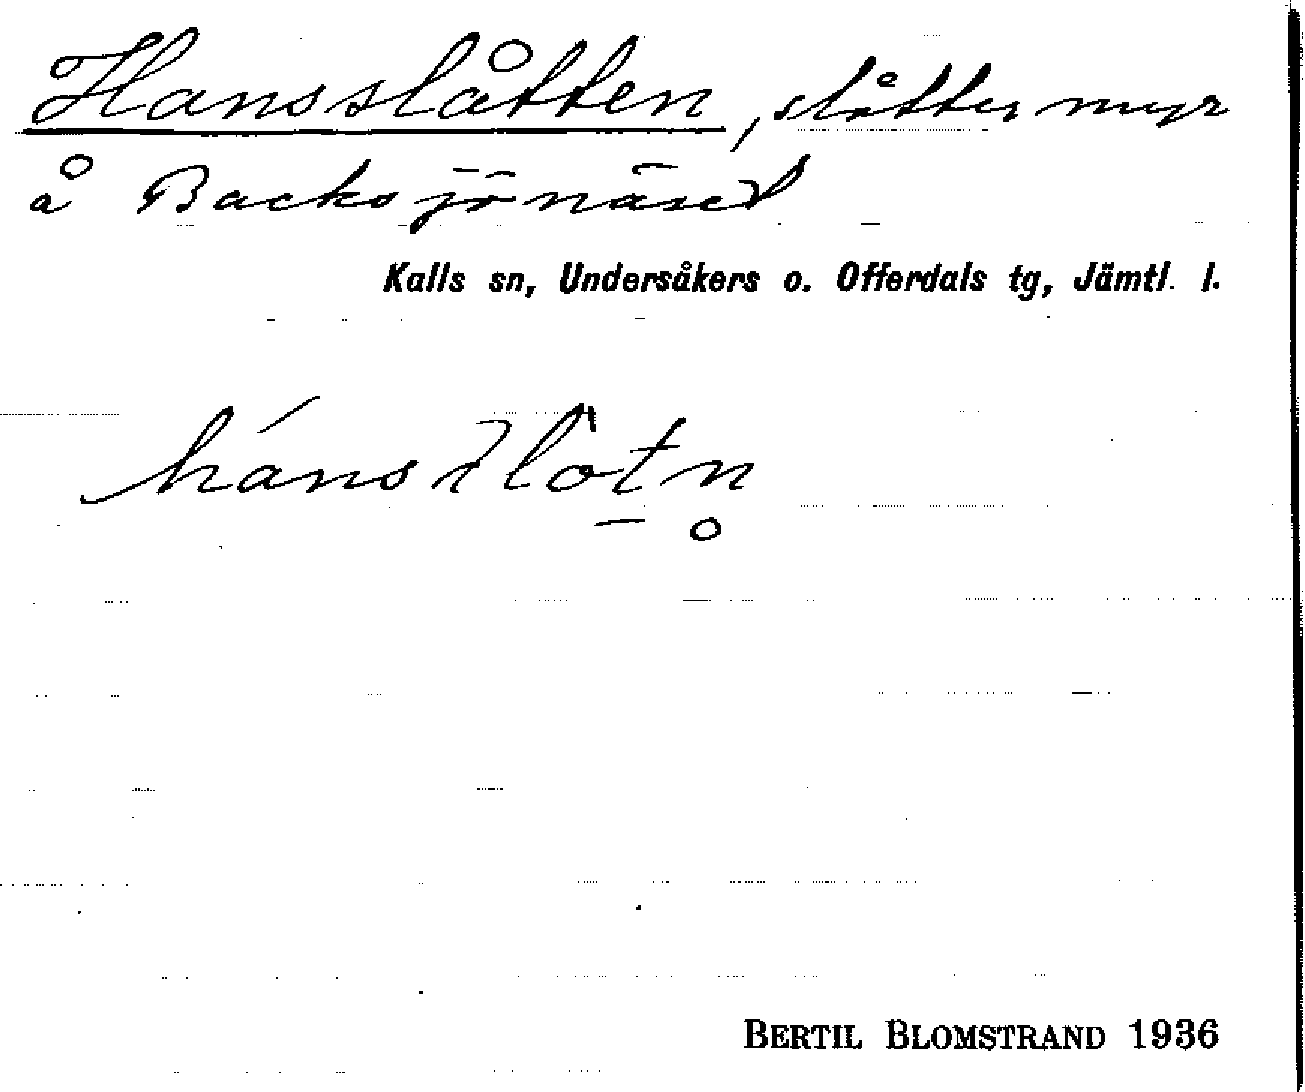 Hansslåtten, slåttesmyr
å Backsjönäset
Kalls sn, Undersåkers o. Offerdals tg, Jämtl. l.
hánsʃlòt̠n̥
BERTIL BLOMSTRAND 1936